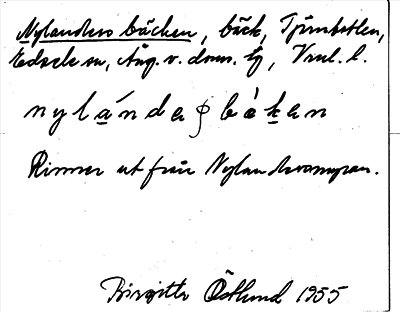 Nylanders bäcken, bäck, Tjärnbotten,
Edsele sn, Ång. v. doms. tg, Vnrl. l.
nylándeʂbäkən
Rinner ut från Nylandersmyran.
Birgitta Östlund 1955